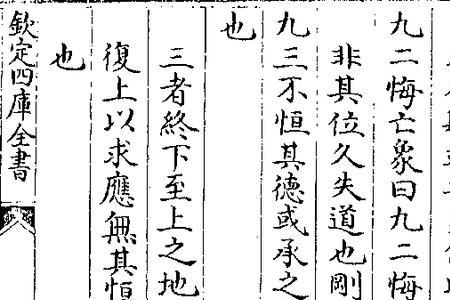 九二悔亡象曰九二悔
非其位久失道也剛
九三不恒其德或承之
也
三者終下至上之地
復上以求應無其恒
也
欽定四庫全書